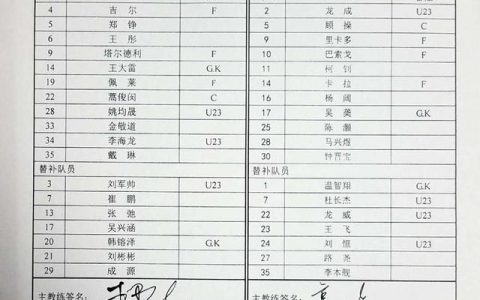 4 吉尔 F 2 龙成 U23
5 郑铮 5 顾操 C
6 王彤 9 里卡多 F
9 塔尔德利 F 10 巴索戈 F
14 王大雷 G.K 11 柯钊
19 佩莱 F 14 卡拉 F
22 蒿俊闵 C 16 杨阔
28 姚均晟 U23 17 吴龑 G.K
33 金敬道 25 陈灏
34 李海龙 U23 28 马兴煜
35 戴琳 30 钟晋宝
替补队员 替补队员
3 刘军帅 U23 1 温智翔 G.K
7 崔鹏 7 杜长杰 U23
13 张弛 22 龙威 U23
17 吴兴涵 23 王飞
20 韩镕泽 G.K 24 刘恒 U23
21 刘彬彬 27 路尧
29 成源 35 李本舰
主教练签名: 主教练签名: